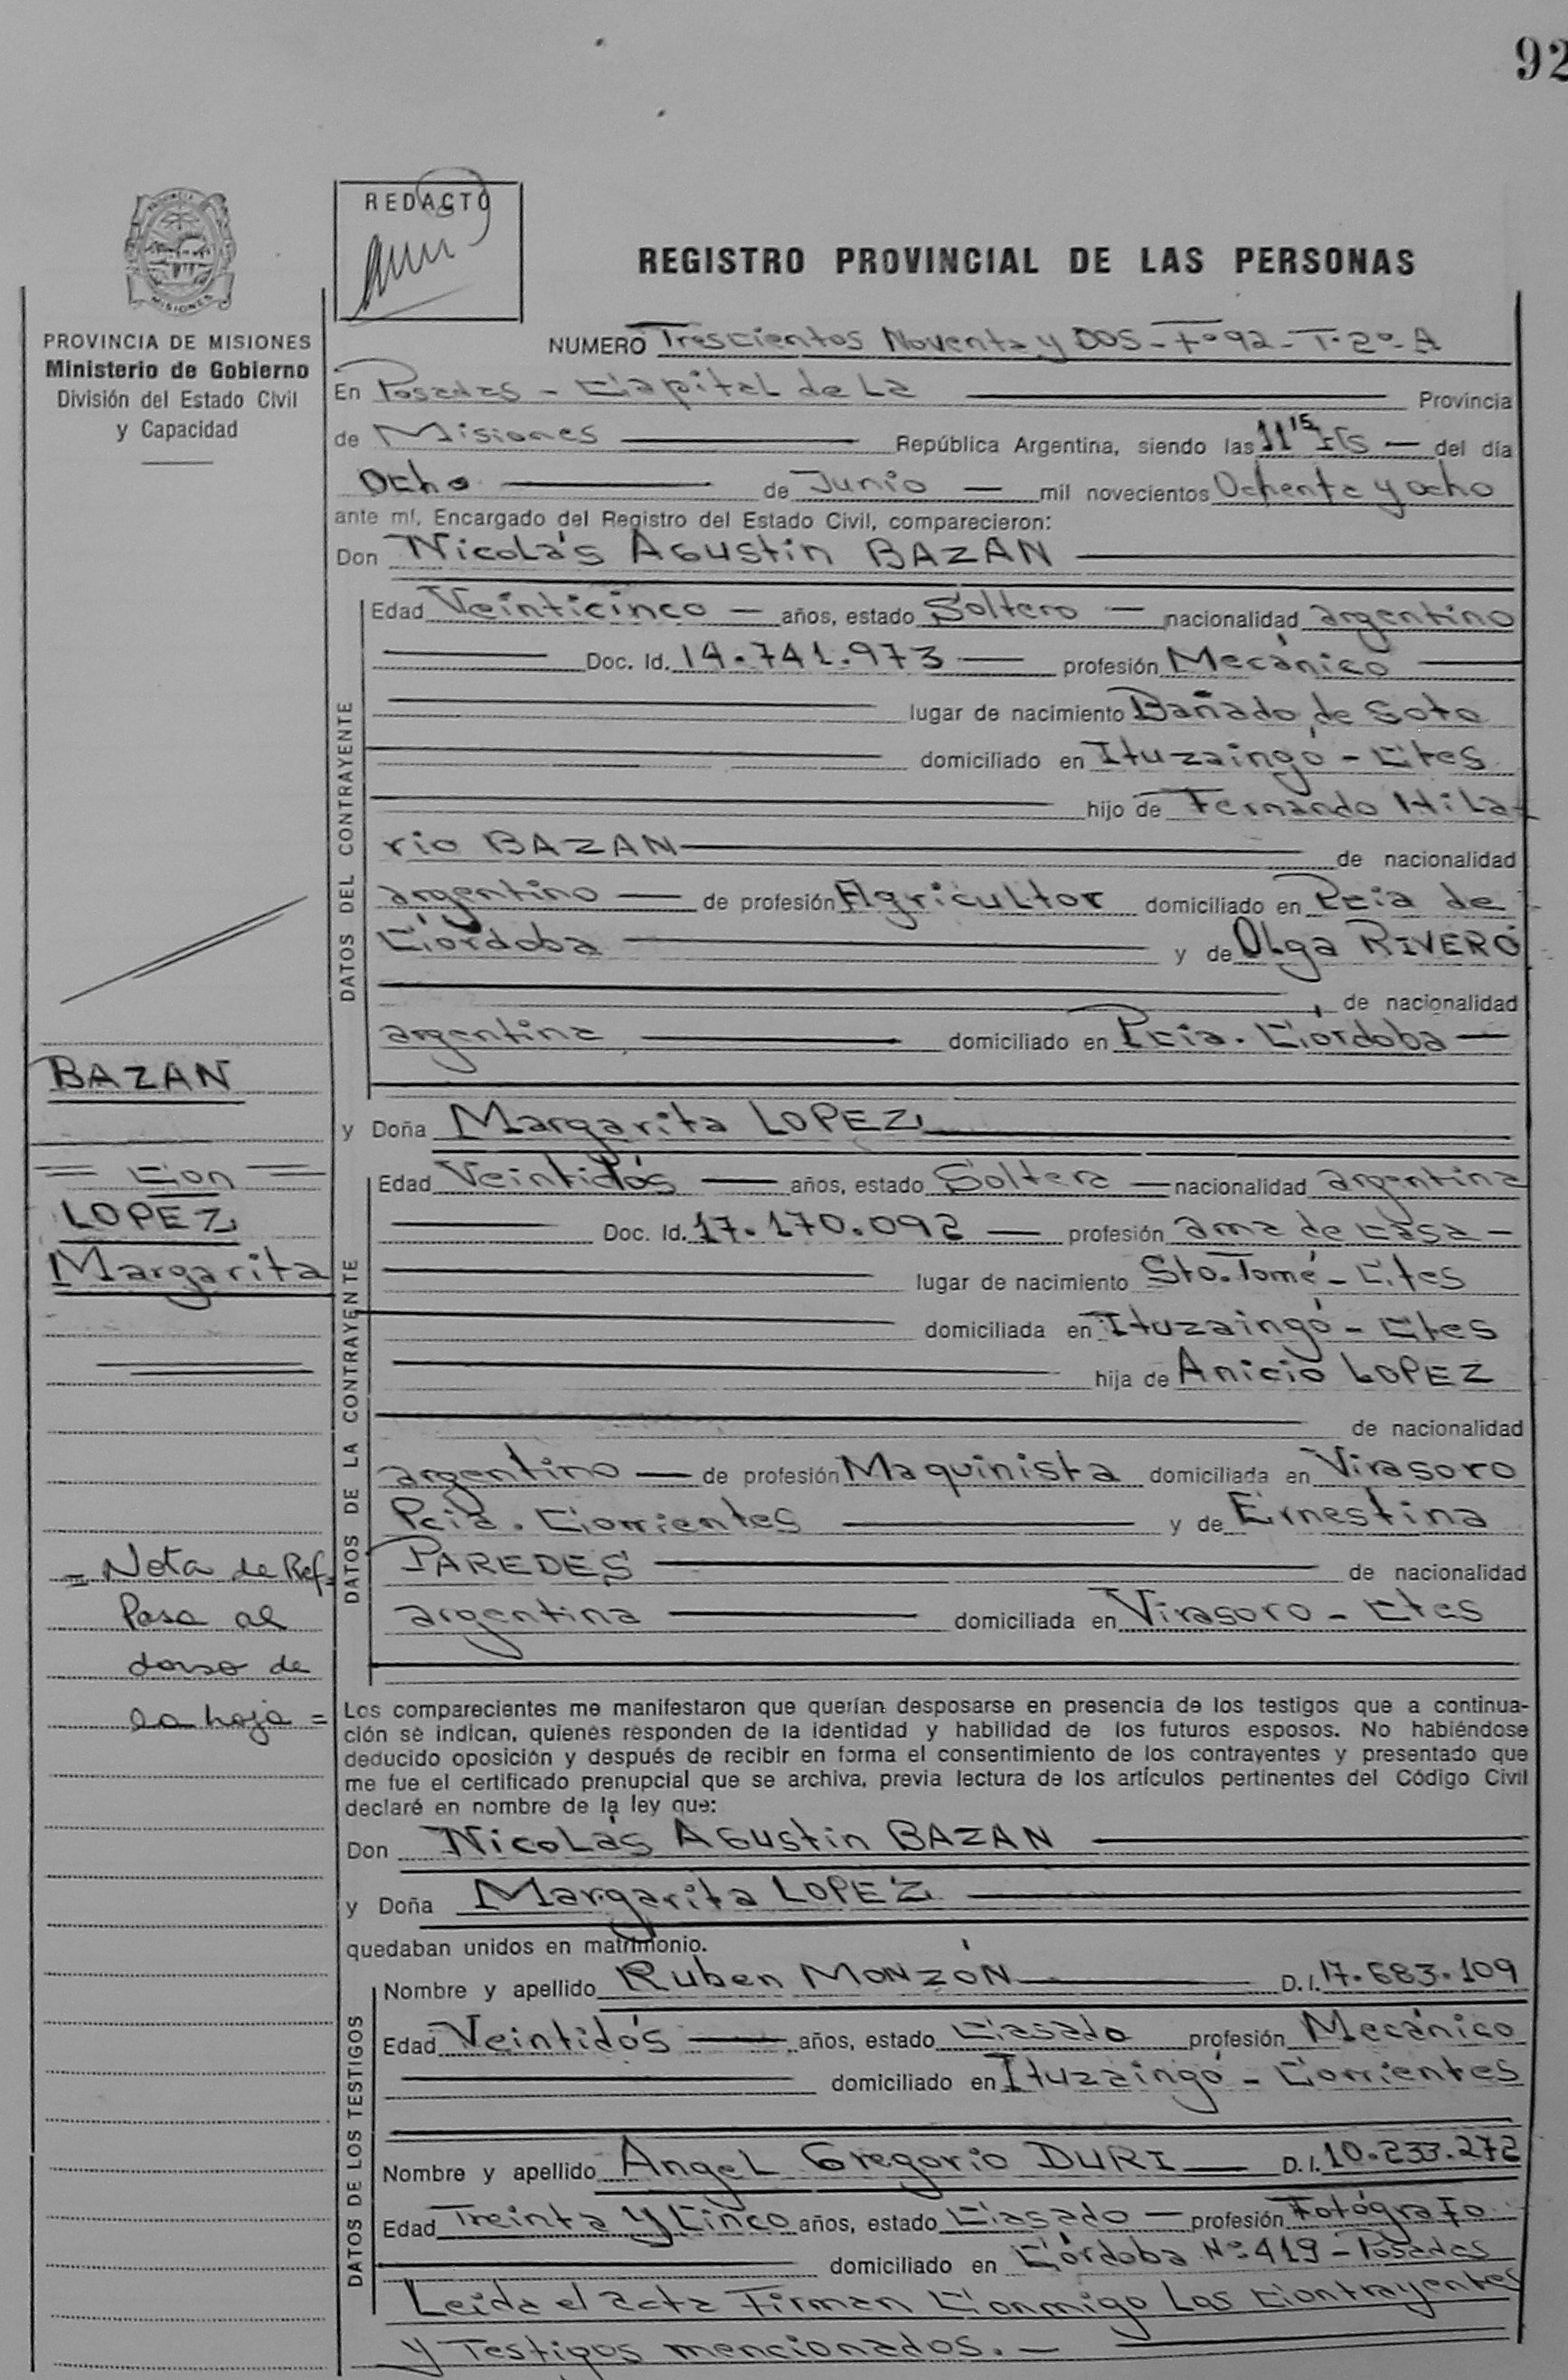 92
REDACTO
REGISTRO PROVINCIAL DE LAS PERSONAS
MISIONES
PROVINCIA DE MISIONES
Ministerio de Gobierno
División del Estado Civil
y Capacidad
NUMERO Trescientos Noventa y DOS - Fº 92 - T. 2º A
En Posadas - Capital de La Provincia
de Misiones República Argentina, siendo las 11 15 Hs del día
Ocho de Junio mil novecientos Ochenta y ocho
ante mí, Encargado del Registro del Estado Civil, comparecieron:
Don Nicolás Agustin BAZAN
DATOS DEL CONTRAYENTE
Edad Veinticinco años, estado Soltero nacionalidad argentino
Doc. Id. 14.741.973 profesión Mecánico
lugar de nacimiento Bañado de Soto
domiciliado en Ituzaingó - Ctes
hijo de Fernando Hila-
rio BAZAN de nacionalidad
argentino de profesión Agricultor domiciliado en Pcia de
Córdoba y de Olga RIVERO
de nacionalidad
argentina domiciliado en Pcia. Córdoba
BAZAN
con
LOPEZ
Margarita
y Doña Margarita LOPEZ
DATOS DE LA CONTRAYENTE
Edad Veintidós años, estado Soltera nacionalidad argentina
Doc. Id. 17.170.092 profesión ama de casa
lugar de nacimiento Sto. Tomé - Ctes
domiciliada en Ituzaingó - Ctes
hija de Anicio LOPEZ
de nacionalidad
argentino de profesión Maquinista domiciliada en Virasoro
Pcia. Corrientes y de Ernestina
PAREDES de nacionalidad
argentina domiciliada en Virasoro - Ctes
= Nota de Ref=
Pasa al
dorso de
la hoja =
Los comparecientes me manifestaron que querían desposarse en presencia de los testigos que a continua-
ción se indican, quienes responden de la identidad y habilidad de los futuros esposos. No habiéndose
deducido oposición y después de recibir en forma el consentimiento de los contrayentes y presentado que
me fue el certificado prenupcial que se archiva, previa lectura de los artículos pertinentes del Código Civil
declaré en nombre de la ley que:
Don Nicolás Agustin BAZAN
y Doña Margarita LOPEZ
quedaban unidos en matrimonio.
DATOS DE LOS TESTIGOS
Nombre y apellido Ruben MONZÓN D.I. 17.683.109
Edad Veintidós años, estado Casado profesión Mecánico
domiciliado en Ituzaingó - Corrientes
Nombre y apellido Angel Gregorio DURI D.I. 10.233.272
Edad Treinta y Cinco años, estado Casado profesión Fotógrafo
domiciliado en Córdoba Nº 419 - Posadas
Leída el acta Firman Conmigo Los Contrayentes
y Testigos mencionados. -